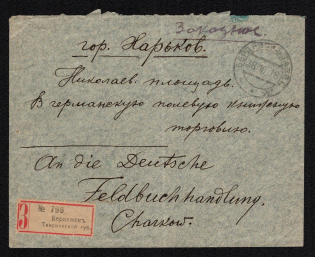 Заказное
гор. Харьков.
Николаев. площадь.
В германскую полевую книжную
торговлю.
An die Deutsche
Feldbuchhandlung.
Charkow.
З
№ 798
Бердянскъ
Таврической губ.